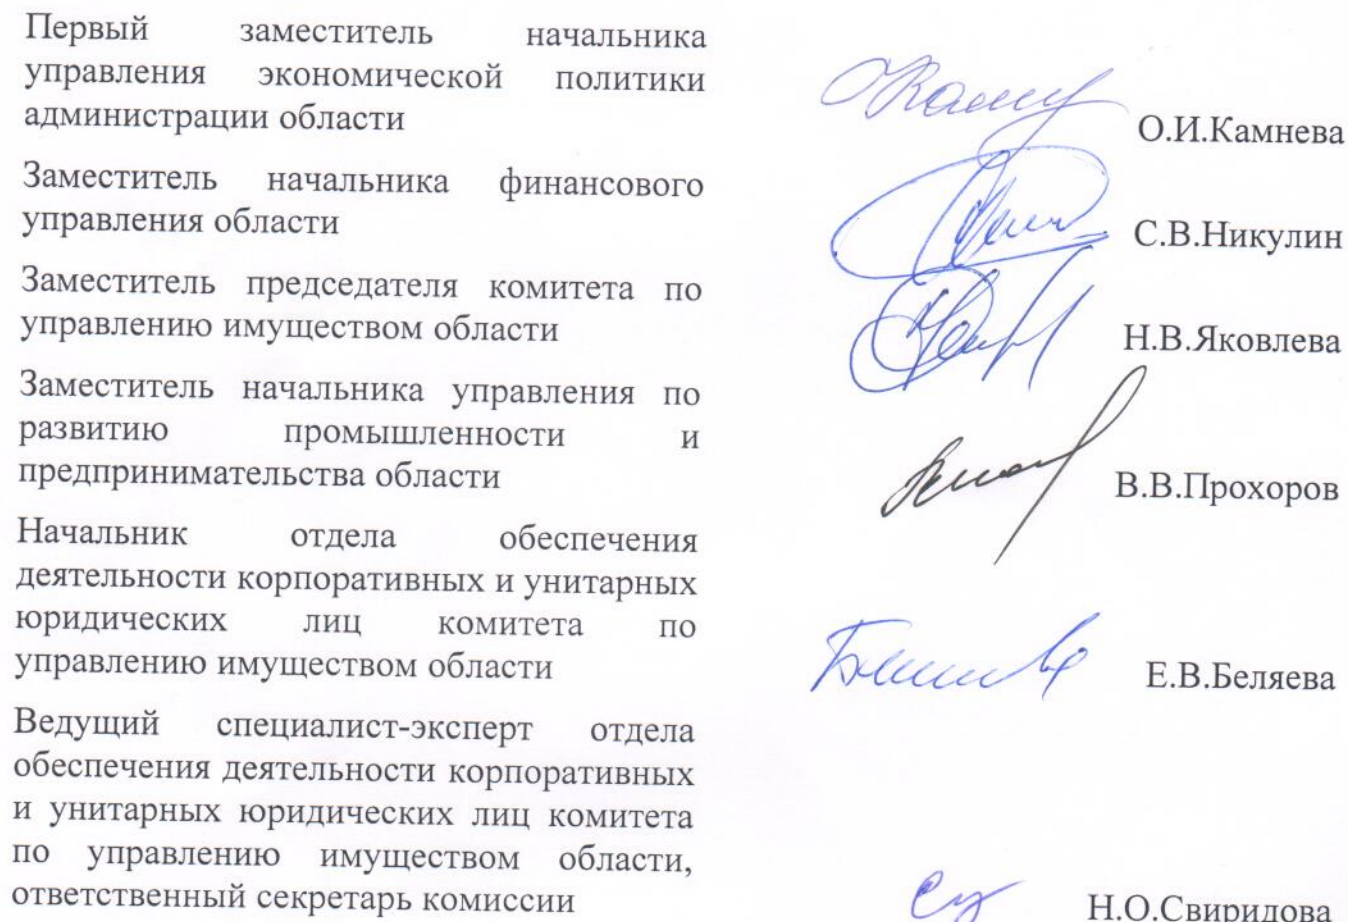 Первый заместитель начальника
управления экономической политики
администрации области
О.И.Камнева
Заместитель начальника финансового
управления области
С.В.Никулин
Заместитель председателя комитета по
управлению имуществом области
Н.В.Яковлева
Заместитель начальника управления по
развитию промышленности и
предпринимательства области
В.В.Прохоров
Начальник отдела обеспечения
деятельности корпоративных и унитарных
юридических лиц комитета по
управлению имуществом области
Е.В.Беляева
Ведущий специалист-эксперт отдела
обеспечения деятельности корпоративных
и унитарных юридических лиц комитета
по управлению имуществом области,
ответственный секретарь комиссии
Н.О.Свиридова